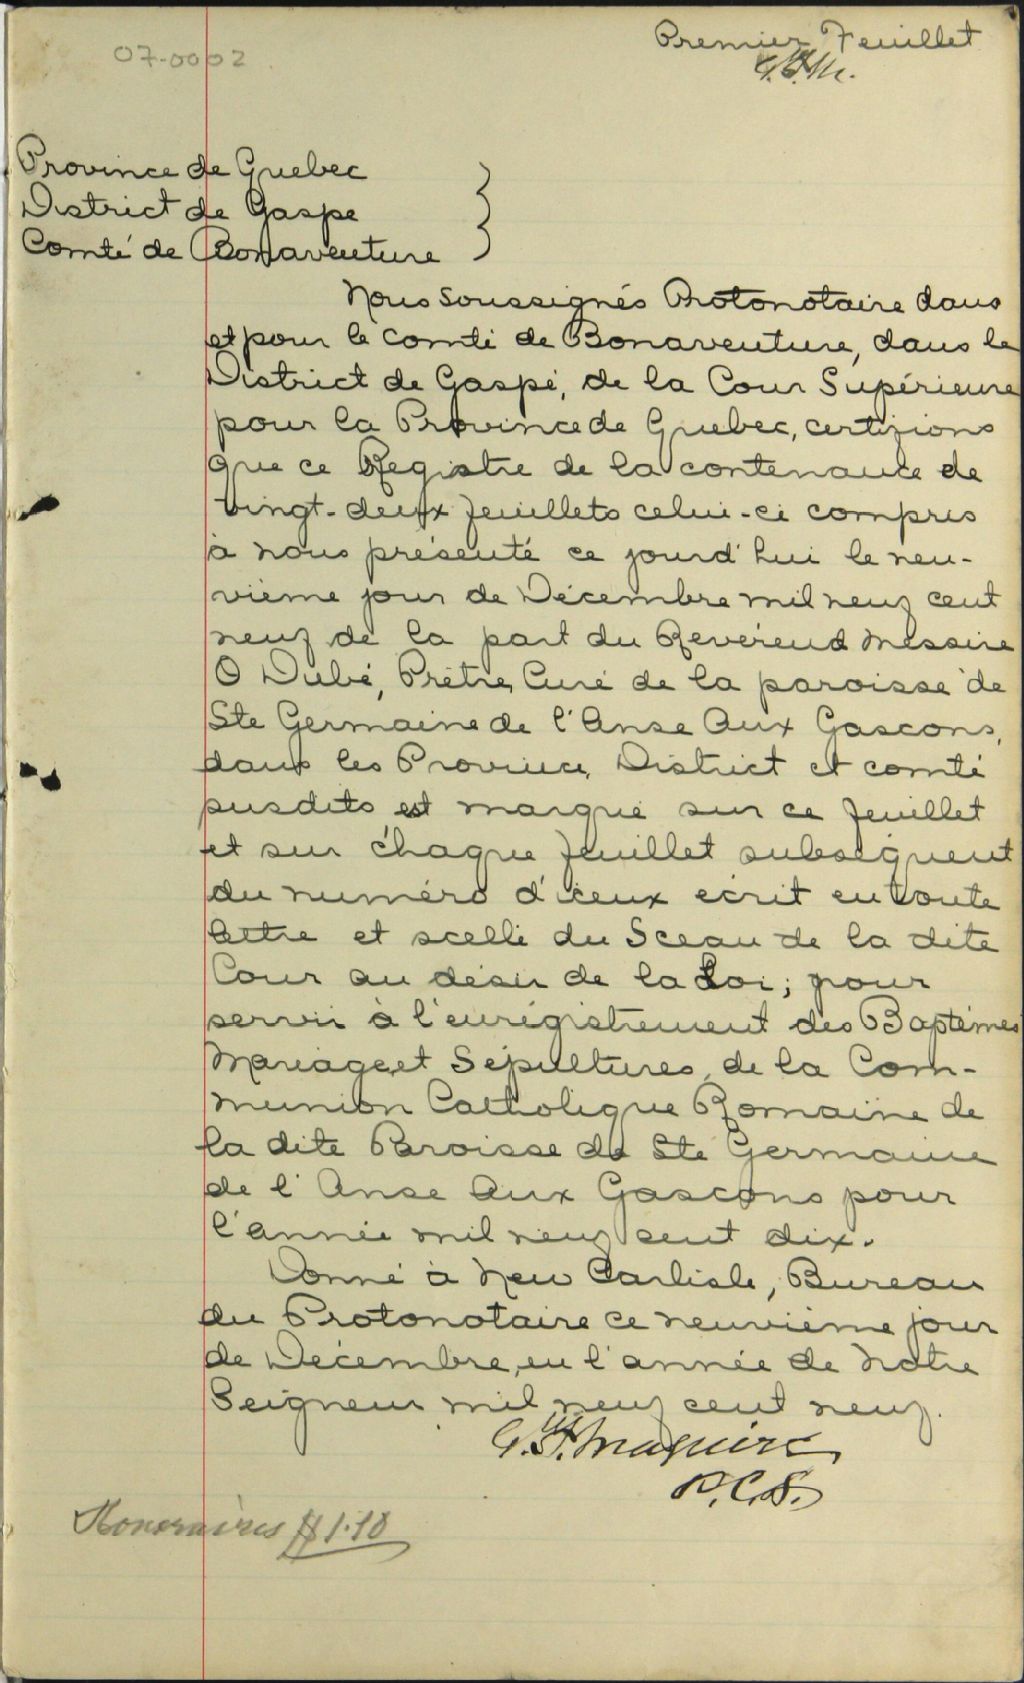 07-0002
Premier Feuillet
G.H.M.
Province de Quebec
District de Gaspe
Comté de Bonaventure
Nous soussignés Protonotaire dans
et pour le comté de Bonaventure, dans le
District de Gaspé, de la Cour Supérieure
pour la Province de Quebec, certifions
que ce Registre de la contenance de
vingt-deux feuillets celui-ci compris
à nous présenté ce jourd'hui le neu-
vième jour de Décembre mil neuf cent
neuf de la part du Reverend Messire
O Dubé, Prêtre, Curé de la paroisse de
Ste Germaine de l'Anse Aux Gascons,
dans les Province, District et comté
susdits est marqué sur ce feuillet
et sur chaque feuillet subséquent
du numéro d'iceux ecrit en toute
lettre et scellé du Sceau de la dite
Cour au désir de la Loi; pour
servir à l'enrégistrement des Baptêmes
Mariage et Sépultures, de la Com-
munion Catholique Romaine de
la dite Paroisse de Ste Germaine
de l'Anse Aux Gascons pour
l'année mil neuf cent dix.
Donné à New Carlisle, Bureau
du Protonotaire ce neuvième jour
de Décembre, en l'année de Notre
Seigneur mil neuf cent neuf.
Maguire
P.C.S.
Honoraires $1.10